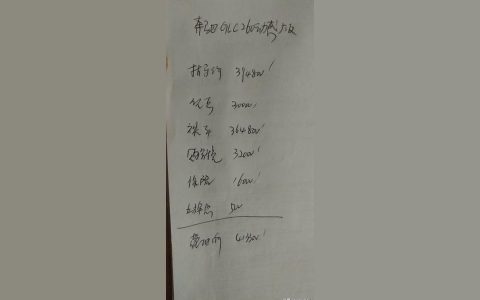 奔驰GLC260动感版
指导价 394800
优惠 30000
裸车 364800
购置税 32000
保险 16000
上牌 500
落地价